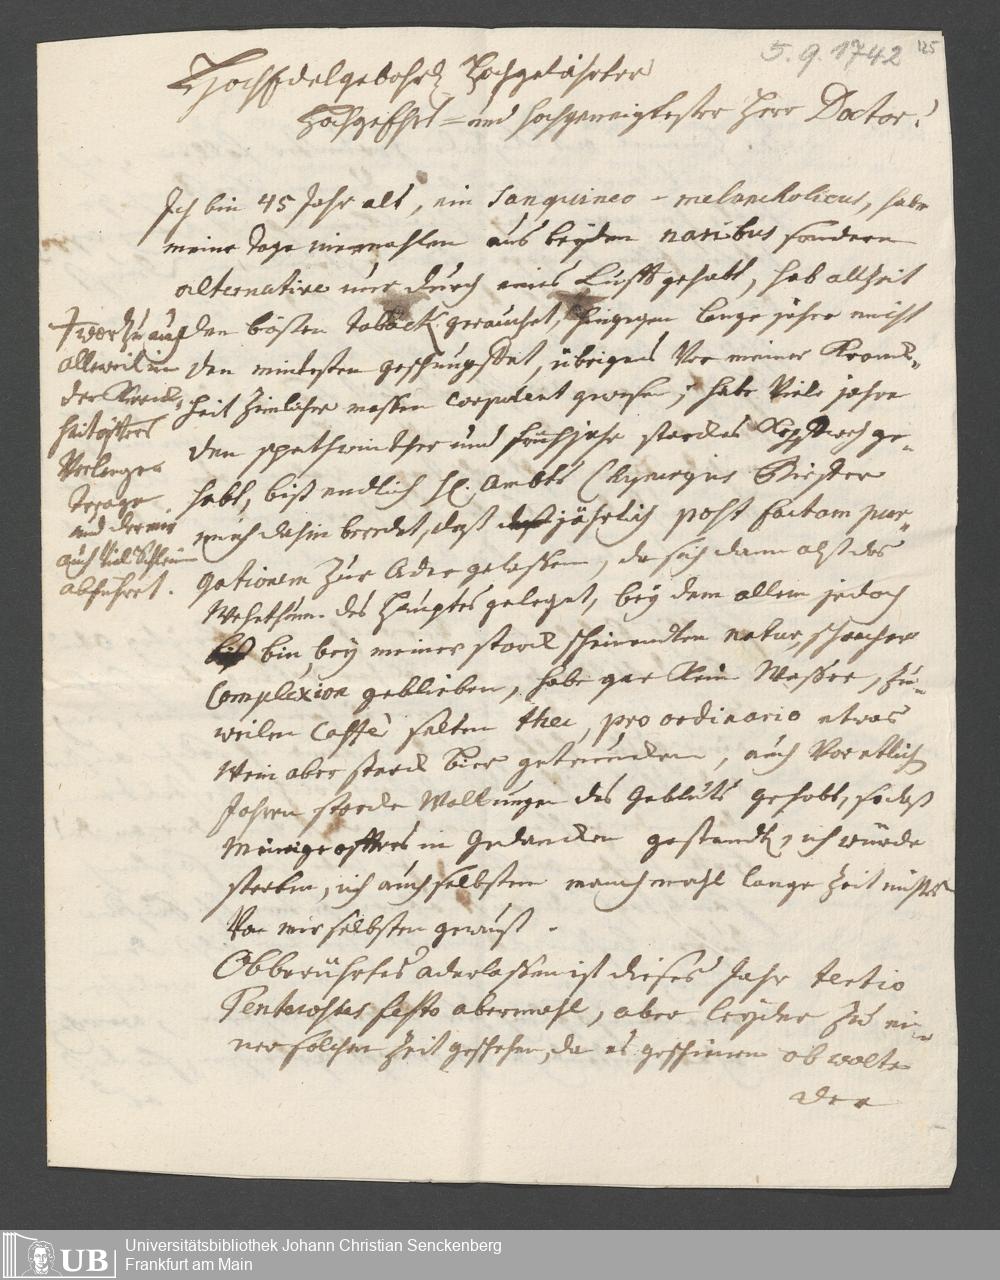 5. 9. 1742
125
HochEdelgebohrner Hochgelährter
Hochgeehrt= und hochgeneigtester Herr Doctor!
Ich bin 45 Jahr alt, ein Sanguineo-melancholicus, habe
meine Tage niemahlen aus beyden naribus sondern
alternative nur durch eines Lufft gehabt, hab allzeit
den bösten Taback gerauchet, hingegen lange jahre nicht
den mindesten geschnupffet, übrigens Vor meiner Kranck-
heit zimlicher massen corpulent gewesen, habe viele jahre
den spathwinther und frühjahr starckes Kopffweh ge-
habt, biß endlich H. Ambts Chyrurgus
mich dahin beredet, daß jährlich post factam pur-
gationem zur Ader gelassen, da sich dann alß das
Wehethum des Hauptes geleget, bey dem allem jedoch
bin, bey meiner starck scheinendten natur, schwacher
Complexion geblieben, habe gar Kein Wasser, zu-
weilen Caffè selten thee, pro ordinario etwas
Wein aber starck bier getruncken, auch Vor etlich
Jahren starcke Wallungen des Geblüts gehabt, so daß
öffters in Gedancken gestandten, ich würde
sterben, ich auch selbsten manchmahl lange Zeit nichts
Von mir selbsten gewust.
Obberührtes aderlassen ist dieses Jahr tertio
Pentecostes festo abermahl, aber leyder zu ei-
ner solchen Zeit geschehen, da es geschienen ob wolte
der
† worzu auch
alleweil in
der Kranck-
heit öffters
Verlangen
trage
und der mir
auch viel Schleim
abführet.
UB
Universitätsbibliothek Johann Christian Senckenberg
Frankfurt am Main